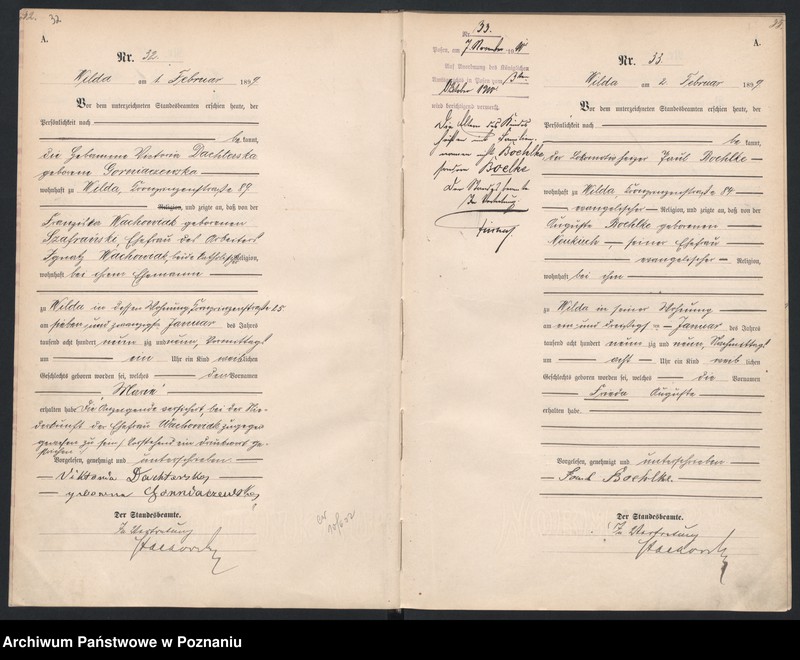 32
A.
Nr. 32.
Wilda am 1. Februar 1899.
Vor dem unterzeichneten Standesbeamten erschien heute, der
Persönlichkeit nach
bekannt,
die Hebamme Victoria Dachtorska
geborene Gorniaczewska
wohnhaft zu Wilda, Kronprinzenstraße 89
Religion, und zeigte an, daß von der
Franziska Wachowiak geborenen
Szafrańska, Ehefrau des Arbeiters
Ignatz Wachowiak, beide katholischer Religion,
wohnhaft bei ihrem Ehemanne
zu Wilda in dessen Wohnung, Kronprinzenstraße 25
am sieben und zwanzigsten Januar des Jahres
tausend acht hundert neun zig und neun, Vormittags
um ein Uhr ein Kind weiblichen
Geschlechts geboren worden sei, welches den Vornamen
erhalten habe. Die Anzeigende versichert, bei der Nie-
derkunft der Ehefrau Wachowiak zugegen
gewesen zu sein.
Vorgelesen, genehmigt und unterschrieben
Viktoria
geborene
Der Standesbeamte.
In Vertretung
Nr. 33.
Posen, am 7. November
Auf Anordnung des Königlichen
Amtsgerichts in Posen vom
Oktober
wird berichtigend vermerkt,
Die Eltern des Kindes
Familien-
namen nicht Boehlke,
sondern Boelke
Der Standesbeamte
In Vertretung
33.
A.
Nr. 33.
Wilda am 2. Februar 1899.
Vor dem unterzeichneten Standesbeamten erschien heute, der
Persönlichkeit nach
bekannt,
der Lokomotivheizer Paul Boehlke
wohnhaft zu Wilda Kronprinzenstraße 84
evangelischer Religion, und zeigte an, daß von der
Auguste Boehlke geborenen
seiner Ehefrau
evangelischer Religion,
wohnhaft bei ihm
zu Wilda in seiner Wohnung
am ein und dreißigsten Januar des Jahres
tausend acht hundert neun zig und neun, Nachmittags
um acht Uhr ein Kind weiblichen
Geschlechts geboren worden sei, welches die Vornamen
Frieda Auguste
erhalten habe.
Vorgelesen, genehmigt und unterschrieben
Paul Boehlke.
Der Standesbeamte.
In Vertretung
Archiwum Państwowe w Poznaniu